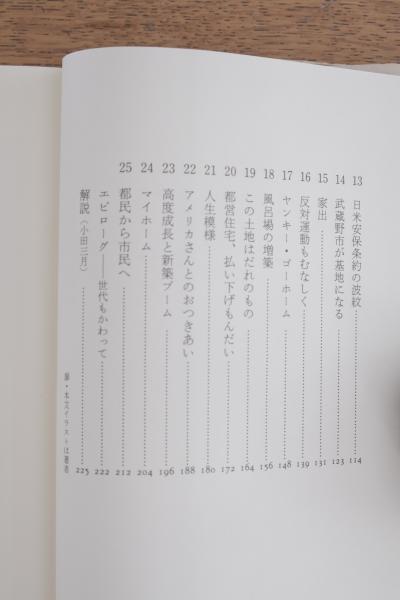 13 日米安保条約の波紋 114
14 武蔵野市が基地になる 123
15 家出 131
16 反対運動もむなしく 139
17 ヤンキー・ゴーホーム 148
18 風呂場の増築 156
19 この土地はだれのもの 164
20 都営住宅、払い下げもんだい 172
21 人生模様 180
22 アメリカさんとのおつきあい 188
23 高度成長と新築ブーム 196
24 マイホーム 204
25 都民から市民へ 212
エピローグ――世代もかわって 222
解説（小田三月） 225
扉・本文イラストは著者